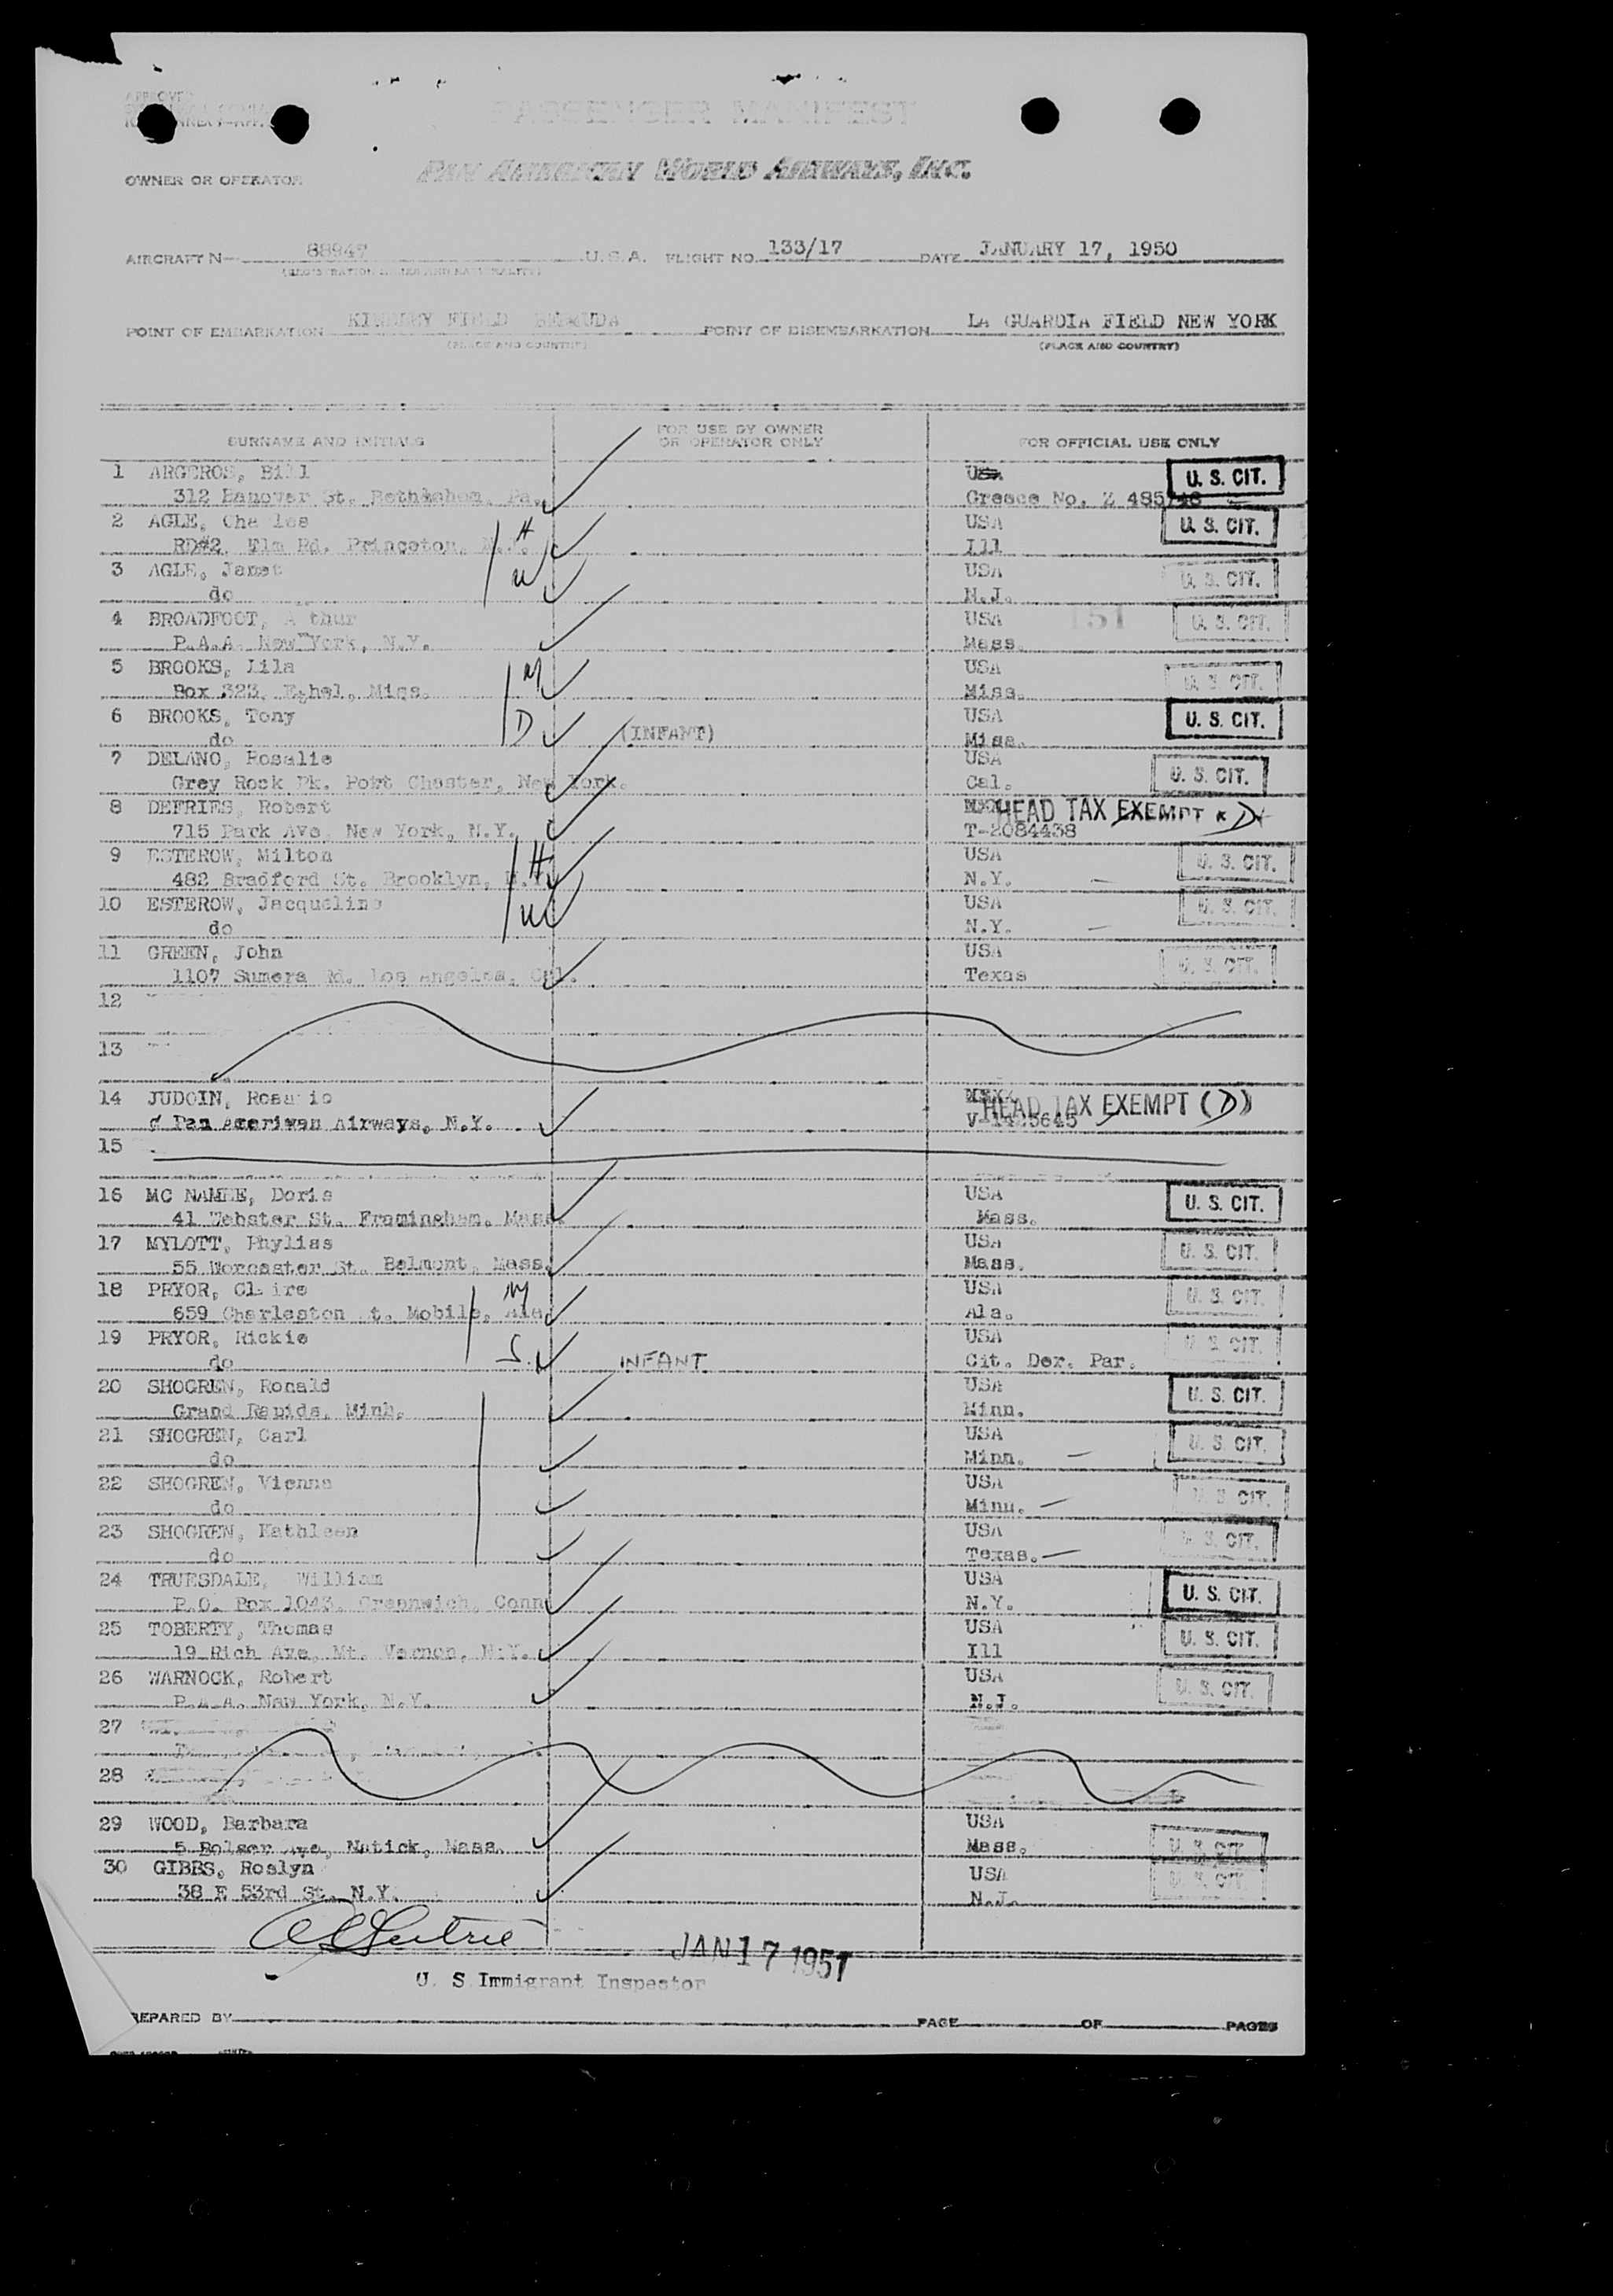 APPROVED
PASSENGER MANIFEST
OWNER OR OPERATOR PAN AMERICAN WORLD AIRWAYS, INC.
AIRCRAFT N— 88947 U.S.A. FLIGHT NO. 133/17 DATE JANUARY 17, 1950
POINT OF EMBARKATION KINDLEY FIELD BERMUDA POINT OF DISEMBARKATION LA GUARDIA FIELD NEW YORK
(PLACE AND COUNTRY) (PLACE AND COUNTRY)
SURNAME AND INITIALS FOR USE BY OWNER OR OPERATOR ONLY FOR OFFICIAL USE ONLY
1 ARGEROS, Bill USA U. S. CIT.
312 Hanover St. Bethlehem, Pa. Greece No. Z 485748
2 AGLE, Cha les H USA U. S. CIT.
RD#2, Elm Rd. Princeton, N.J. Ill
3 AGLE, Janet W USA U. S. CIT.
do N.J.
4 BROADFOOT, A thur USA 151 U. S. CIT.
P.A.A. New York, N.Y. Mass.
5 BROOKS, Lila M USA U. S. CIT.
Box 323, Ethel, Miss. Miss.
6 BROOKS, Tony D (INFANT) USA U. S. CIT.
do Miss.
7 DELANO, Rosalie USA U. S. CIT.
Grey Rock Pk. Port Chester, New York. Cal.
8 DEFRIES, Robert HEAD TAX EXEMPT
715 Park Ave, New York, N.Y. T-2084438
9 ESTEROW, Milton H USA U. S. CIT.
482 Bradford St. Brooklyn, N.Y. N.Y.
10 ESTEROW, Jacqueline W USA U. S. CIT.
do N.Y.
11 GREEN, John USA U. S. CIT.
1107 Sumera Rd. Los Angeles, Cal. Texas
12
13
14 JUDOIN, Rosario HEAD TAX EXEMPT (D)
Pan Ameriwan Airways, N.Y. V-1425645
15
16 MC NAMEE, Doris USA U. S. CIT.
41 Webster St. Framingham, Mass. Mass.
17 MYLOTT, Phyliss USA U. S. CIT.
55 Worcester St. Belmont, Mass. Mass.
18 PRYOR, Claire M USA U. S. CIT.
659 Charleston t. Mobile, Ala. Ala.
19 PRYOR, Rickie S. INFANT USA U. S. CIT.
do Cit. Der. Par.
20 SHOGREN, Ronald USA U. S. CIT.
Grand Rapids, Minn. Minn.
21 SHOGREN, Carl USA U. S. CIT.
do Minn.
22 SHOGREN, Vienna USA U. S. CIT.
do Minn.
23 SHOGREN, Kathleen USA U. S. CIT.
do Texas.
24 TRUESDALE, William USA U. S. CIT.
P.O. Box 1043, Greenwich, Conn N.Y.
25 TOBERTY, Thomas USA U. S. CIT.
19 Rich Ave, Mt. Vernon, N.Y. Ill
26 WARNOCK, Robert USA U. S. CIT.
P.A.A. New York, N.Y. N.J.
27
28
29 WOOD, Barbara USA
5 Bolser Ave, Natick, Mass. Mass. U. S. CIT.
30 GIBBS, Roslyn USA U. S. CIT.
38 E 53rd St. N.Y. N.J.
JAN 17 1951
U. S Immigrant Inspector
REPARED BY PAGE OF PAGES